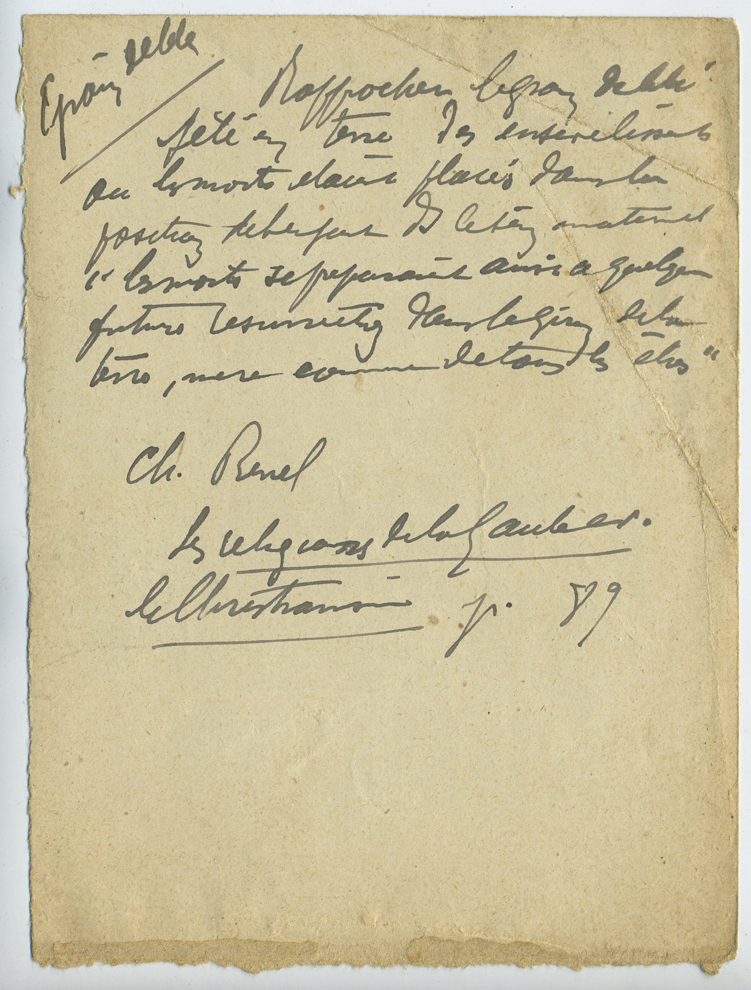 grain de blé
Rapprocher le grain de blé
jeté en terre des ensevelissements
ou les morts étaient placés dans la
position de l'enfant ds le sein maternel
" les morts se preparaient ainsi a quelque
future resurrection dans le sein de la
terre, mere commune de tous les êtres "
Ch. Renel
Les religions de la Gaule av.
le Christianisme p. 89